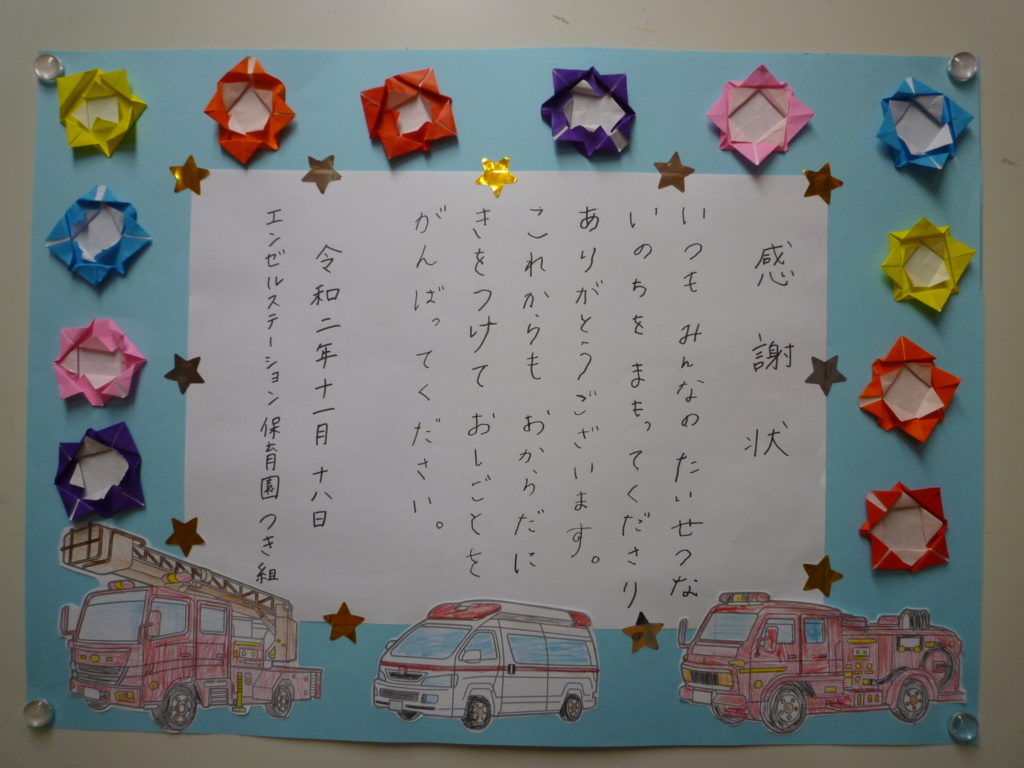 感謝状
いつも みんなの たいせつな
いのちを まもってくださり
ありがとうございます。
これからも おからだに
きをつけて おしごとを
がんばってください。
令和二年十一月十八日
エンゼルステーション保育園つき組